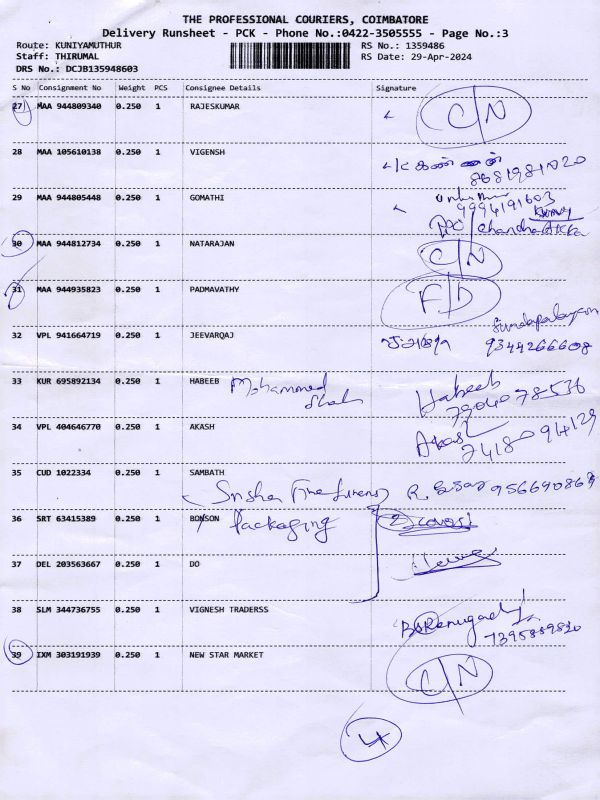 THE PROFESSIONAL COURIERS, COIMBATORE
Delivery Runsheet - PCK - Phone No.:0422-3505555 - Page No.:3
Route: KUNIYAMUTHUR RS No.: 1359486
Staff: THIRUMAL RS Date: 29-Apr-2024
DRS No.: DCJB135948603
S No Consignment No Weight PCS Consignee Details Signature
27 MAA 944809340 0.250 1 RAJESKUMAR C/N
28 MAA 105610138 0.250 1 VIGENSH
29 MAA 944805448 0.250 1 GOMATHI
9994191603
30 MAA 944812734 0.250 1 NATARAJAN C/N
31 MAA 944935823 0.250 1 PADMAVATHY F/D
32 VPL 941664719 0.250 1 JEEVARQAJ
9344266608
33 KUR 695892134 0.250 1 HABEEB Mohammed Habeeb
7904078536
34 VPL 404646770 0.250 1 AKASH Akash
7418094129
35 CUD 1022334 0.250 1 SAMBATH
956690863
36 SRT 63415389 0.250 1 BONSON Packaging
37 DEL 203563667 0.250 1 DO
38 SLM 344736755 0.250 1 VIGNESH TRADERSS
39 IXM 303191939 0.250 1 NEW STAR MARKET C/N